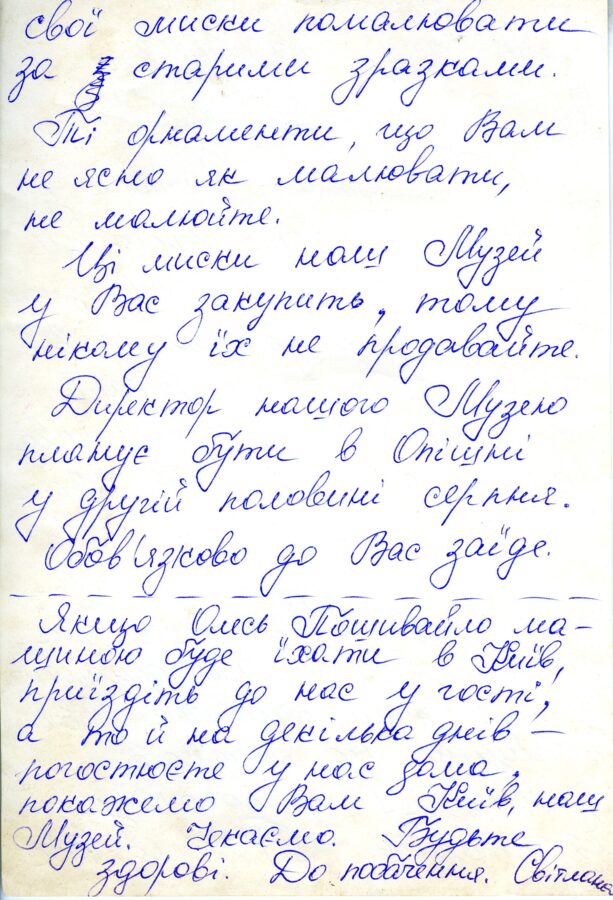 свої миски помалювати
за старими зразками.
Ті орнаменти, що Вам
не ясно як малювати,
не малюйте.
Ці миски наш Музей
у Вас закупить, тому
нікому їх не продавайте.
Директор нашого Музею
планує бути в Опішні
у другій половині серпня.
Обов'язково до Вас заїде.
Якщо Олесь Пошивайло ма-
шиною буде їхати в Київ,
приїздіть до нас у гості,
а то й на декілька днів –
погостюєте у нас дома,
покажемо Вам Київ, наш
Музей. Чекаємо. Будьте
здорові. До побачення. Світлана